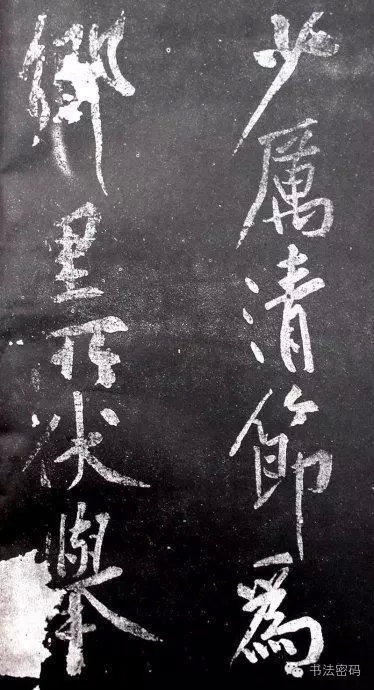 少厲清節為
鄉里所伏舉
书法密码